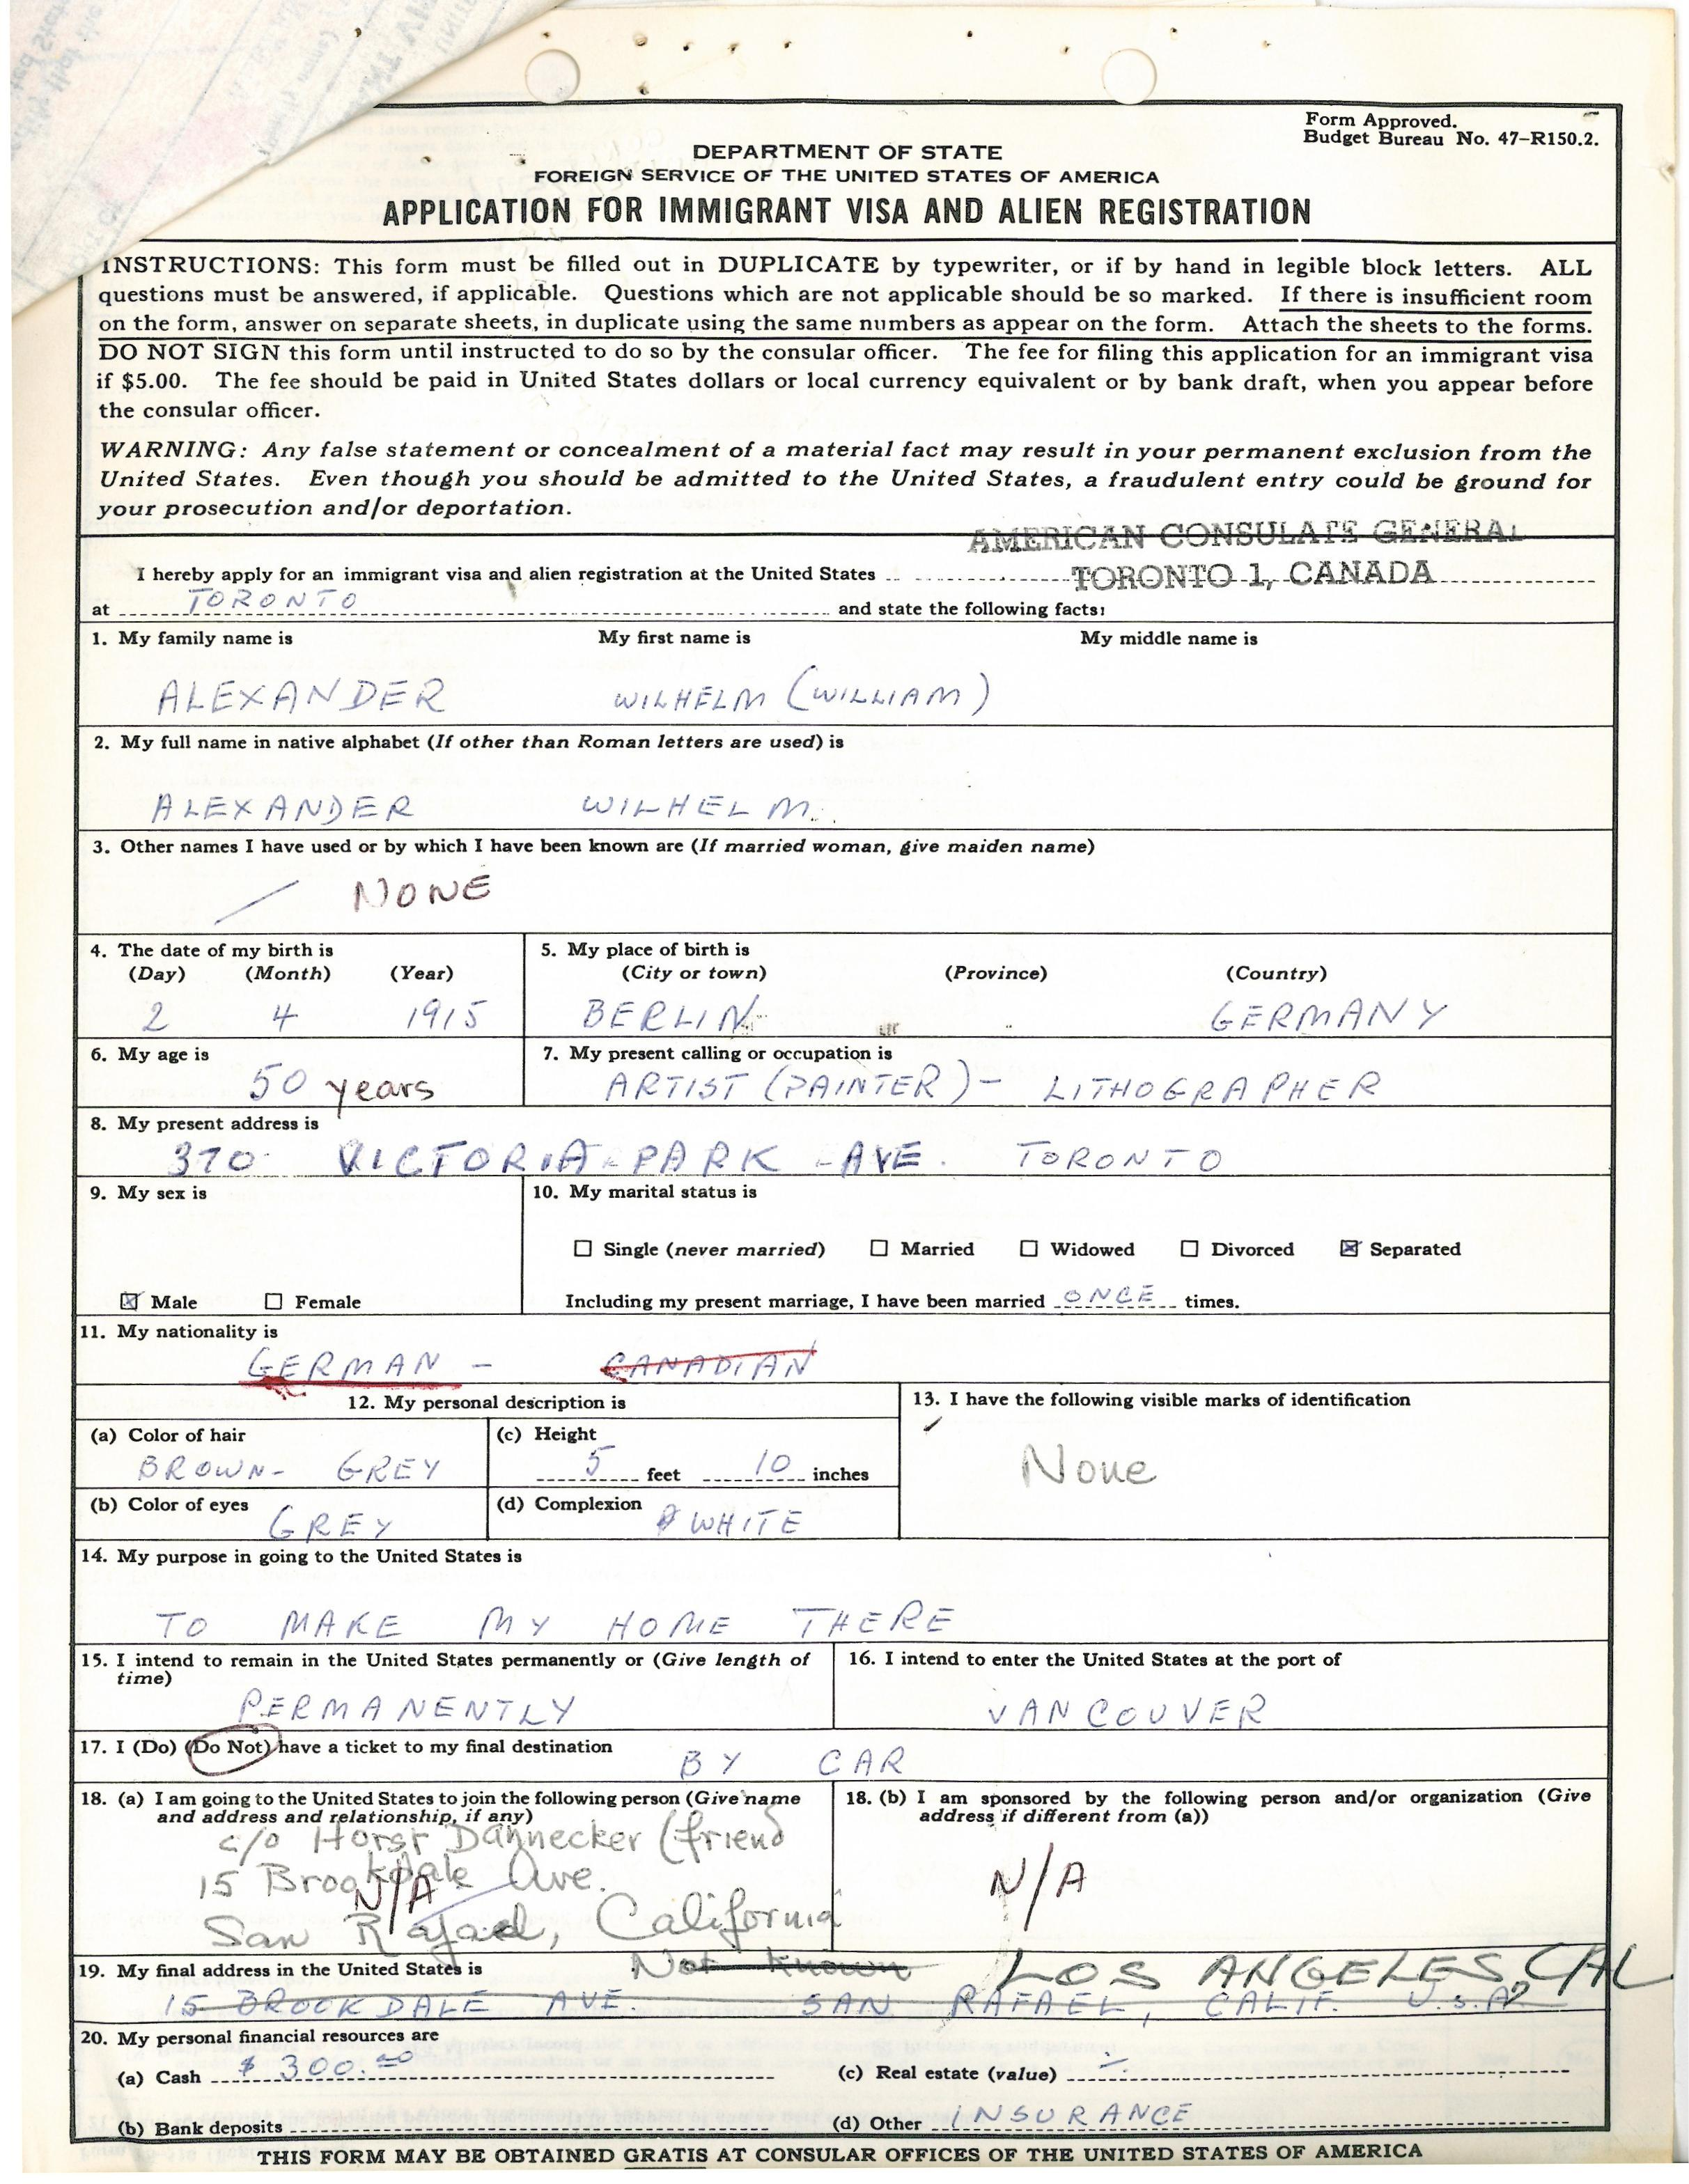 Form Approved.
Budget Bureau No. 47-R150.2.
DEPARTMENT OF STATE
FOREIGN SERVICE OF THE UNITED STATES OF AMERICA
APPLICATION FOR IMMIGRANT VISA AND ALIEN REGISTRATION
INSTRUCTIONS: This form must be filled out in DUPLICATE by typewriter, or if by hand in legible block letters. ALL
questions must be answered, if applicable. Questions which are not applicable should be so marked. If there is insufficient room
on the form, answer on separate sheets, in duplicate using the same numbers as appear on the form. Attach the sheets to the forms.
DO NOT SIGN this form until instructed to do so by the consular officer. The fee for filing this application for an immigrant visa
if $5.00. The fee should be paid in United States dollars or local currency equivalent or by bank draft, when you appear before
the consular officer.
WARNING: Any false statement or concealment of a material fact may result in your permanent exclusion from the
United States. Even though you should be admitted to the United States, a fraudulent entry could be ground for
your prosecution and/or deportation.
AMERICAN CONSULATE GENERAL
I hereby apply for an immigrant visa and alien registration at the United States TORONTO 1, CANADA
at TORONTO and state the following facts:
1. My family name is My first name is My middle name is
ALEXANDER WILHELM (WILLIAM)
2. My full name in native alphabet (If other than Roman letters are used) is
ALEXANDER WILHELM.
3. Other names I have used or by which I have been known are (If married woman, give maiden name)
NONE
4. The date of my birth is 5. My place of birth is
(Day) (Month) (Year) (City or town) (Province) (Country)
2 4 1915 BERLIN GERMANY
6. My age is 7. My present calling or occupation is
50 years ARTIST (PAINTER) - LITHOGRAPHER
8. My present address is
370 VICTORIA-PARK -AVE. TORONTO
9. My sex is 10. My marital status is
Single (never married) Married Widowed Divorced Separated
Male Female Including my present marriage, I have been married ONCE times.
11. My nationality is
GERMAN - CANADIAN
12. My personal description is 13. I have the following visible marks of identification
(a) Color of hair (c) Height
BROWN- GREY 5 feet 10 inches None
(b) Color of eyes (d) Complexion
GREY WHITE
14. My purpose in going to the United States is
TO MAKE MY HOME THERE
15. I intend to remain in the United States permanently or (Give length of 16. I intend to enter the United States at the port of
time)
PERMANENTLY VANCOUVER
17. I (Do) (Do Not) have a ticket to my final destination BY CAR
18. (a) I am going to the United States to join the following person (Give name 18. (b) I am sponsored by the following person and/or organization (Give
and address and relationship, if any) address if different from (a))
c/o Horst Dannecker (friend
15 Brookdale Ave.
N/A N/A
San Rafael, California
19. My final address in the United States is Not known LOS ANGELES, CAL
15 BROOKDALE AVE. SAN RAFAEL, CALIF. U.S.A.
20. My personal financial resources are
(a) Cash $ 300.00 (c) Real estate (value)
(b) Bank deposits (d) Other INSURANCE
THIS FORM MAY BE OBTAINED GRATIS AT CONSULAR OFFICES OF THE UNITED STATES OF AMERICA